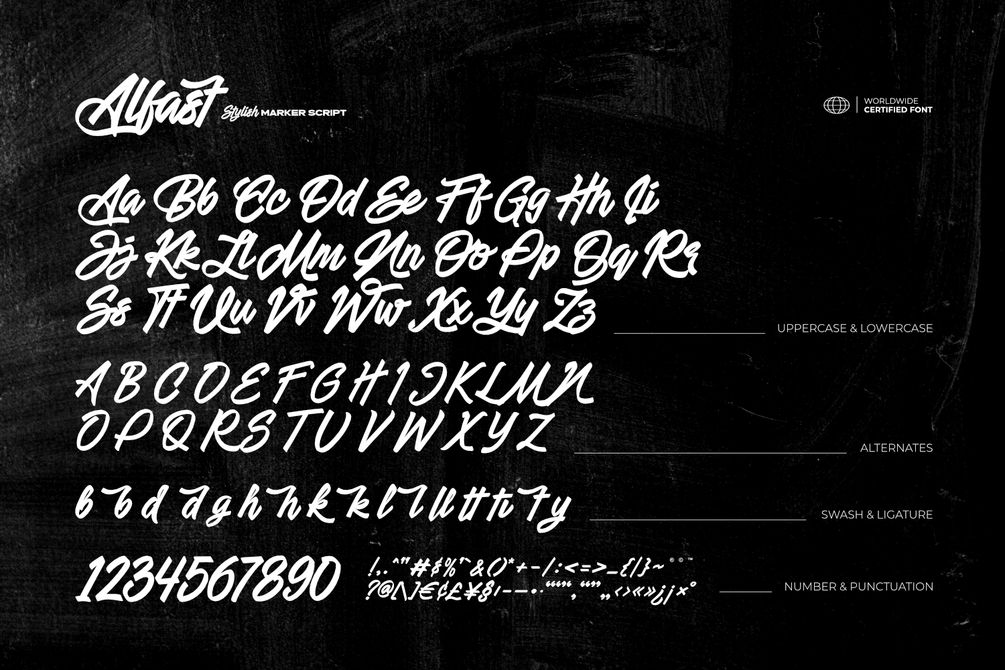 Alfast Stylish MARKER SCRIPT
WORLDWIDE
CERTIFIED FONT
Aa Bb Cc Dd Ee Ff Gg Hh Ii
Jj Kk Ll Mm Nn Oo Pp Qq Rr
Ss Tt Uu Vv Ww Xx Yy Zz
UPPERCASE & LOWERCASE
A B C D E F G H I J K L M N
O P Q R S T U V W X Y Z
ALTERNATES
b b d d g h h k k l l ll tt th t y
SWASH & LIGATURE
1234567890
NUMBER & PUNCTUATION